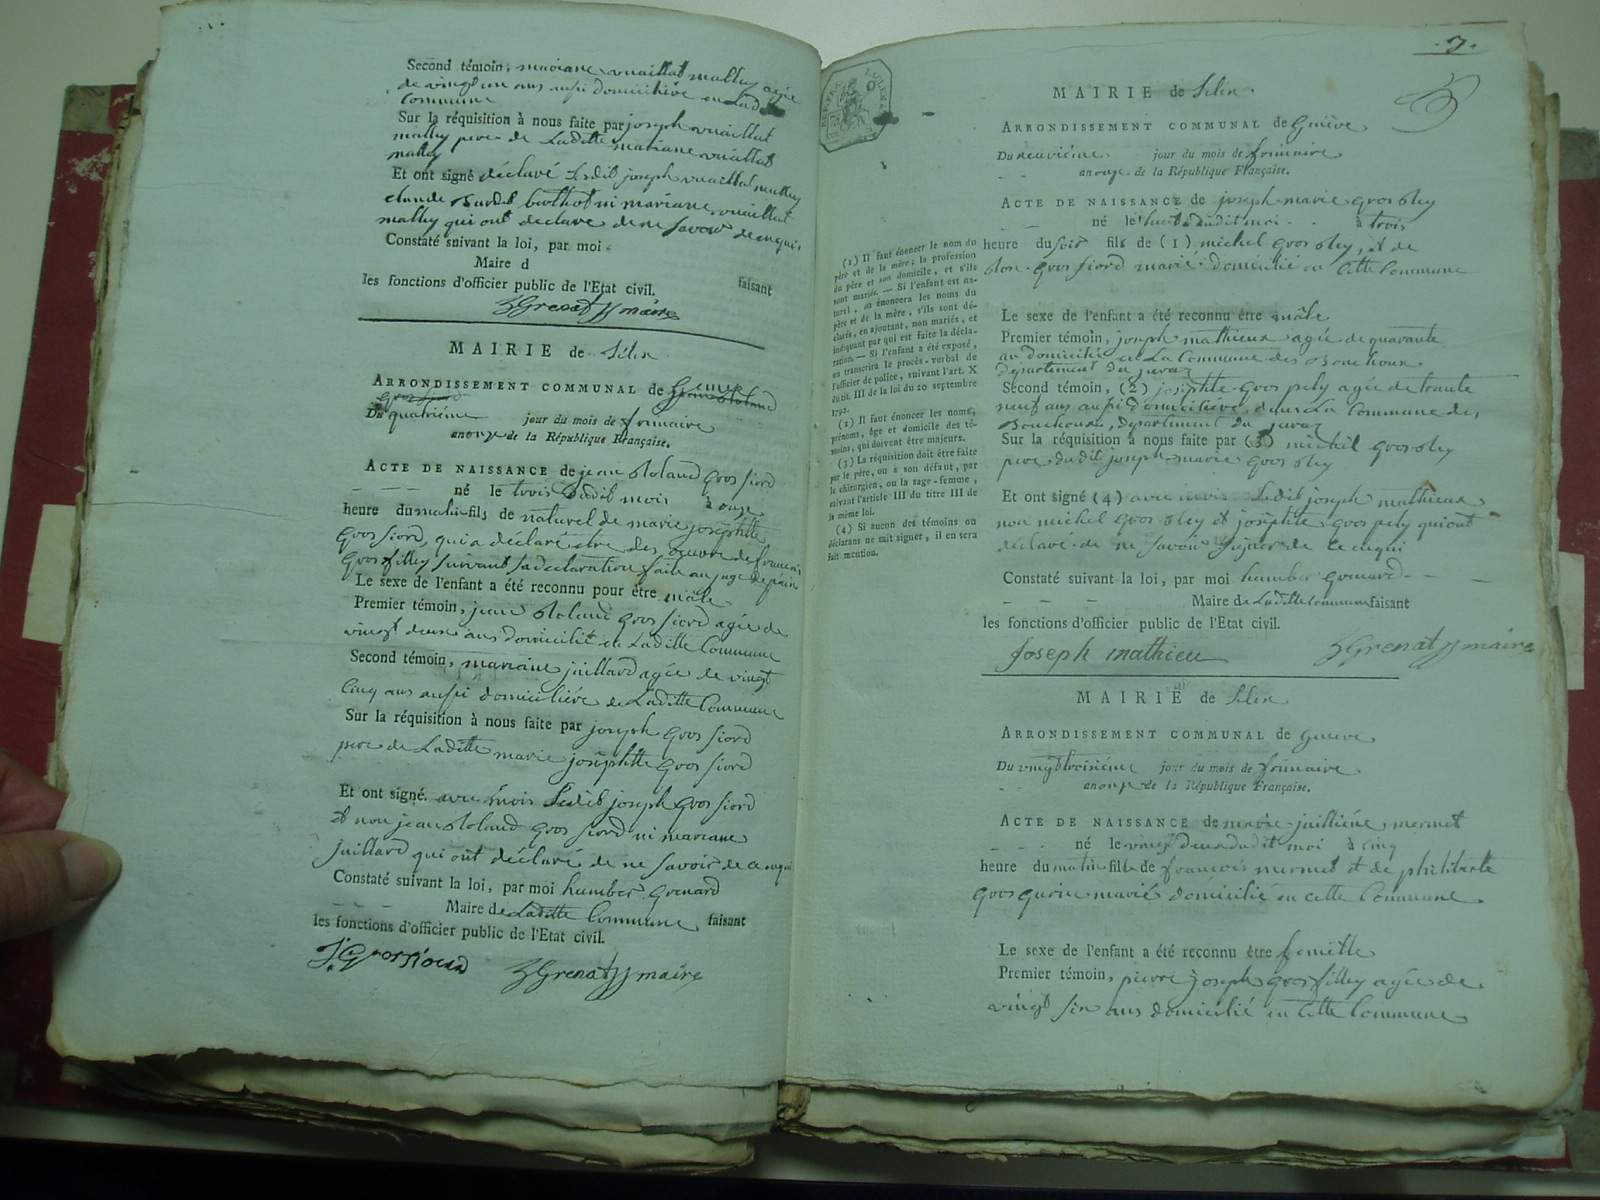 Second témoin, mariane vuaillat malley agée
de vingt un ans aussi domiciliée
commune
Sur la réquisition à nous faite par joseph vuaillat
malley pere de Laditte mariane vuaillat
malley
Et ont signé déclaré Ledit joseph vuaillat malley
claude ni mariane vuaillat
malley qui ont declare de ne savoir de cequi.
Constaté suivant la loi, par moi
Maire d
faisant
les fonctions d'officier public de l'Etat civil.
Grenat maire
MAIRIE de Selex
ARRONDISSEMENT COMMUNAL de
Du quatriéme jour du mois de frimaire
an onze de la République Française.
ACTE DE NAISSANCE de jean Roland gros fiord
né le trois dudit mois à onze
heure du matin fils de naturel de marie joséphtte
gros fiord, qui a déclaré etre des oeuvre de francois
gros filley suivant sa declaration faite au juge de paix
Le sexe de l'enfant a été reconnu pour être mâle
Premier témoin, jean Roland gros fiord agée de
vingt deux ans domicilié en Laditte Commune
Second témoin, mariane juillard agée de vingt
Cinq ans aussi domiciliée de Laditte Commune
Sur la réquisition à nous faite par joseph gros fiord
pere de Laditte marie joséphtte gros fiord
Et ont signé. avec mois Ledit joseph gros fiord
Et non jean Roland gros fiord ni mariane
juillard qui ont déclaré de ne savoir de ce enqui
Constaté suivant la loi, par moi humber grenard
Maire de Laditte Commune faisant
les fonctions d'officier public de l'Etat civil.
Grenat maire
7.
MAIRIE de Selex.
ARRONDISSEMENT COMMUNAL de Genève
Du neuviéme jour du mois de frimaire
an onze de la République Française.
ACTE DE NAISSANCE de joseph marie gros
né le huit dudit moi à trois
heure du soir fils de (1) michel gros, et de
gros fiord marié domicilié en Cette Commune
Le sexe de l'enfant a été reconnu être mâle
Premier témoin, joseph mathieux agée de quarante
an domicilié en La Commune des Bouchoux
département du juraz
Second témoin, (2) joséphte gros pely agée de trante
neuf ans aussi domiciliée, dans La Commune des
Bouchoux, departement du juraz
Sur la réquisition à nous faite par (3) michel gros
pere, dudit joseph marie gros
Et ont signé (4) avec mois Ledit joseph mathieux
non michel gros et joséphte gros pely qui ont
déclaré de ne savoir signer de ce enqui
Constaté suivant la loi, par moi humber grenard
Maire de Laditte Commune faisant
les fonctions d'officier public de l'Etat civil.
Joseph mathieu Grenat maire
(1) Il faut énoncer le nom du
père et de la mère; la profession
du père et son domicile, et s'ils
sont mariés. — Si l'enfant est na-
turel, on énoncera les noms du
père et de la mère, s'ils sont dé-
clarés, en ajoutant, non mariés, et
indiquant par qui est faite la décla-
ration. — Si l'enfant a été exposé,
on transcrira le procès-verbal de
l'officier de police, suivant l'art. X
du tit. III de la loi du 20 septembre
1792.
(2) Il faut énoncer les noms,
prénoms, âge et domicile des té-
moins, qui doivent être majeurs.
(3) La réquisition doit être faite
par le père, ou à son défaut, par
le chirurgien, ou la sage-femme,
suivant l'article III du titre III de
la même loi.
(4) Si aucun des témoins ou
déclarans ne sait signer, il en sera
fait mention.
MAIRIE de Selex
ARRONDISSEMENT COMMUNAL de Genève.
Du vingt troisiéme jour du mois de frimaire
an onze de la République Française.
ACTE DE NAISSANCE de marie juilliéne mermet
né le vingt deux dudit moi à cinq
heure du matin fille de françois mermet et de philiberte
gros gurin mariés domicilié en cette Commune.
Le sexe de l'enfant a été reconnu être femelle
Premier témoin, pierre joseph gros filley agée de
vingt six ans domicilié en Cette Commune